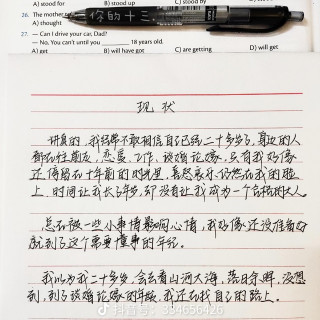 A) stood for B) stood up C) stood by D) stood
26. The mother
27. — Can I drive your car, Dad?
— No, You can't until you ________ 18 years old.
A) get B) will have got C) are getting D) will get
你的十三
现状
讲真的，我经常不敢相信自己已经二十多岁了，身边的人
都在往前走，恋爱、工作、谈婚论嫁，只有我好像
还停留在十年前的时光里，喜怒哀乐仍然在我的脸
上，时间让我长了年岁，却没有让我成为一个合格的大人。
总在被一些小事情影响心情，我好像还没准备好
就到了这个需要懂事的年纪。
我以为我二十多岁，会去看山河大海，落日余晖，没想
到，到了谈婚论嫁的年级，我还在找自己的路上。
抖音号：334656426